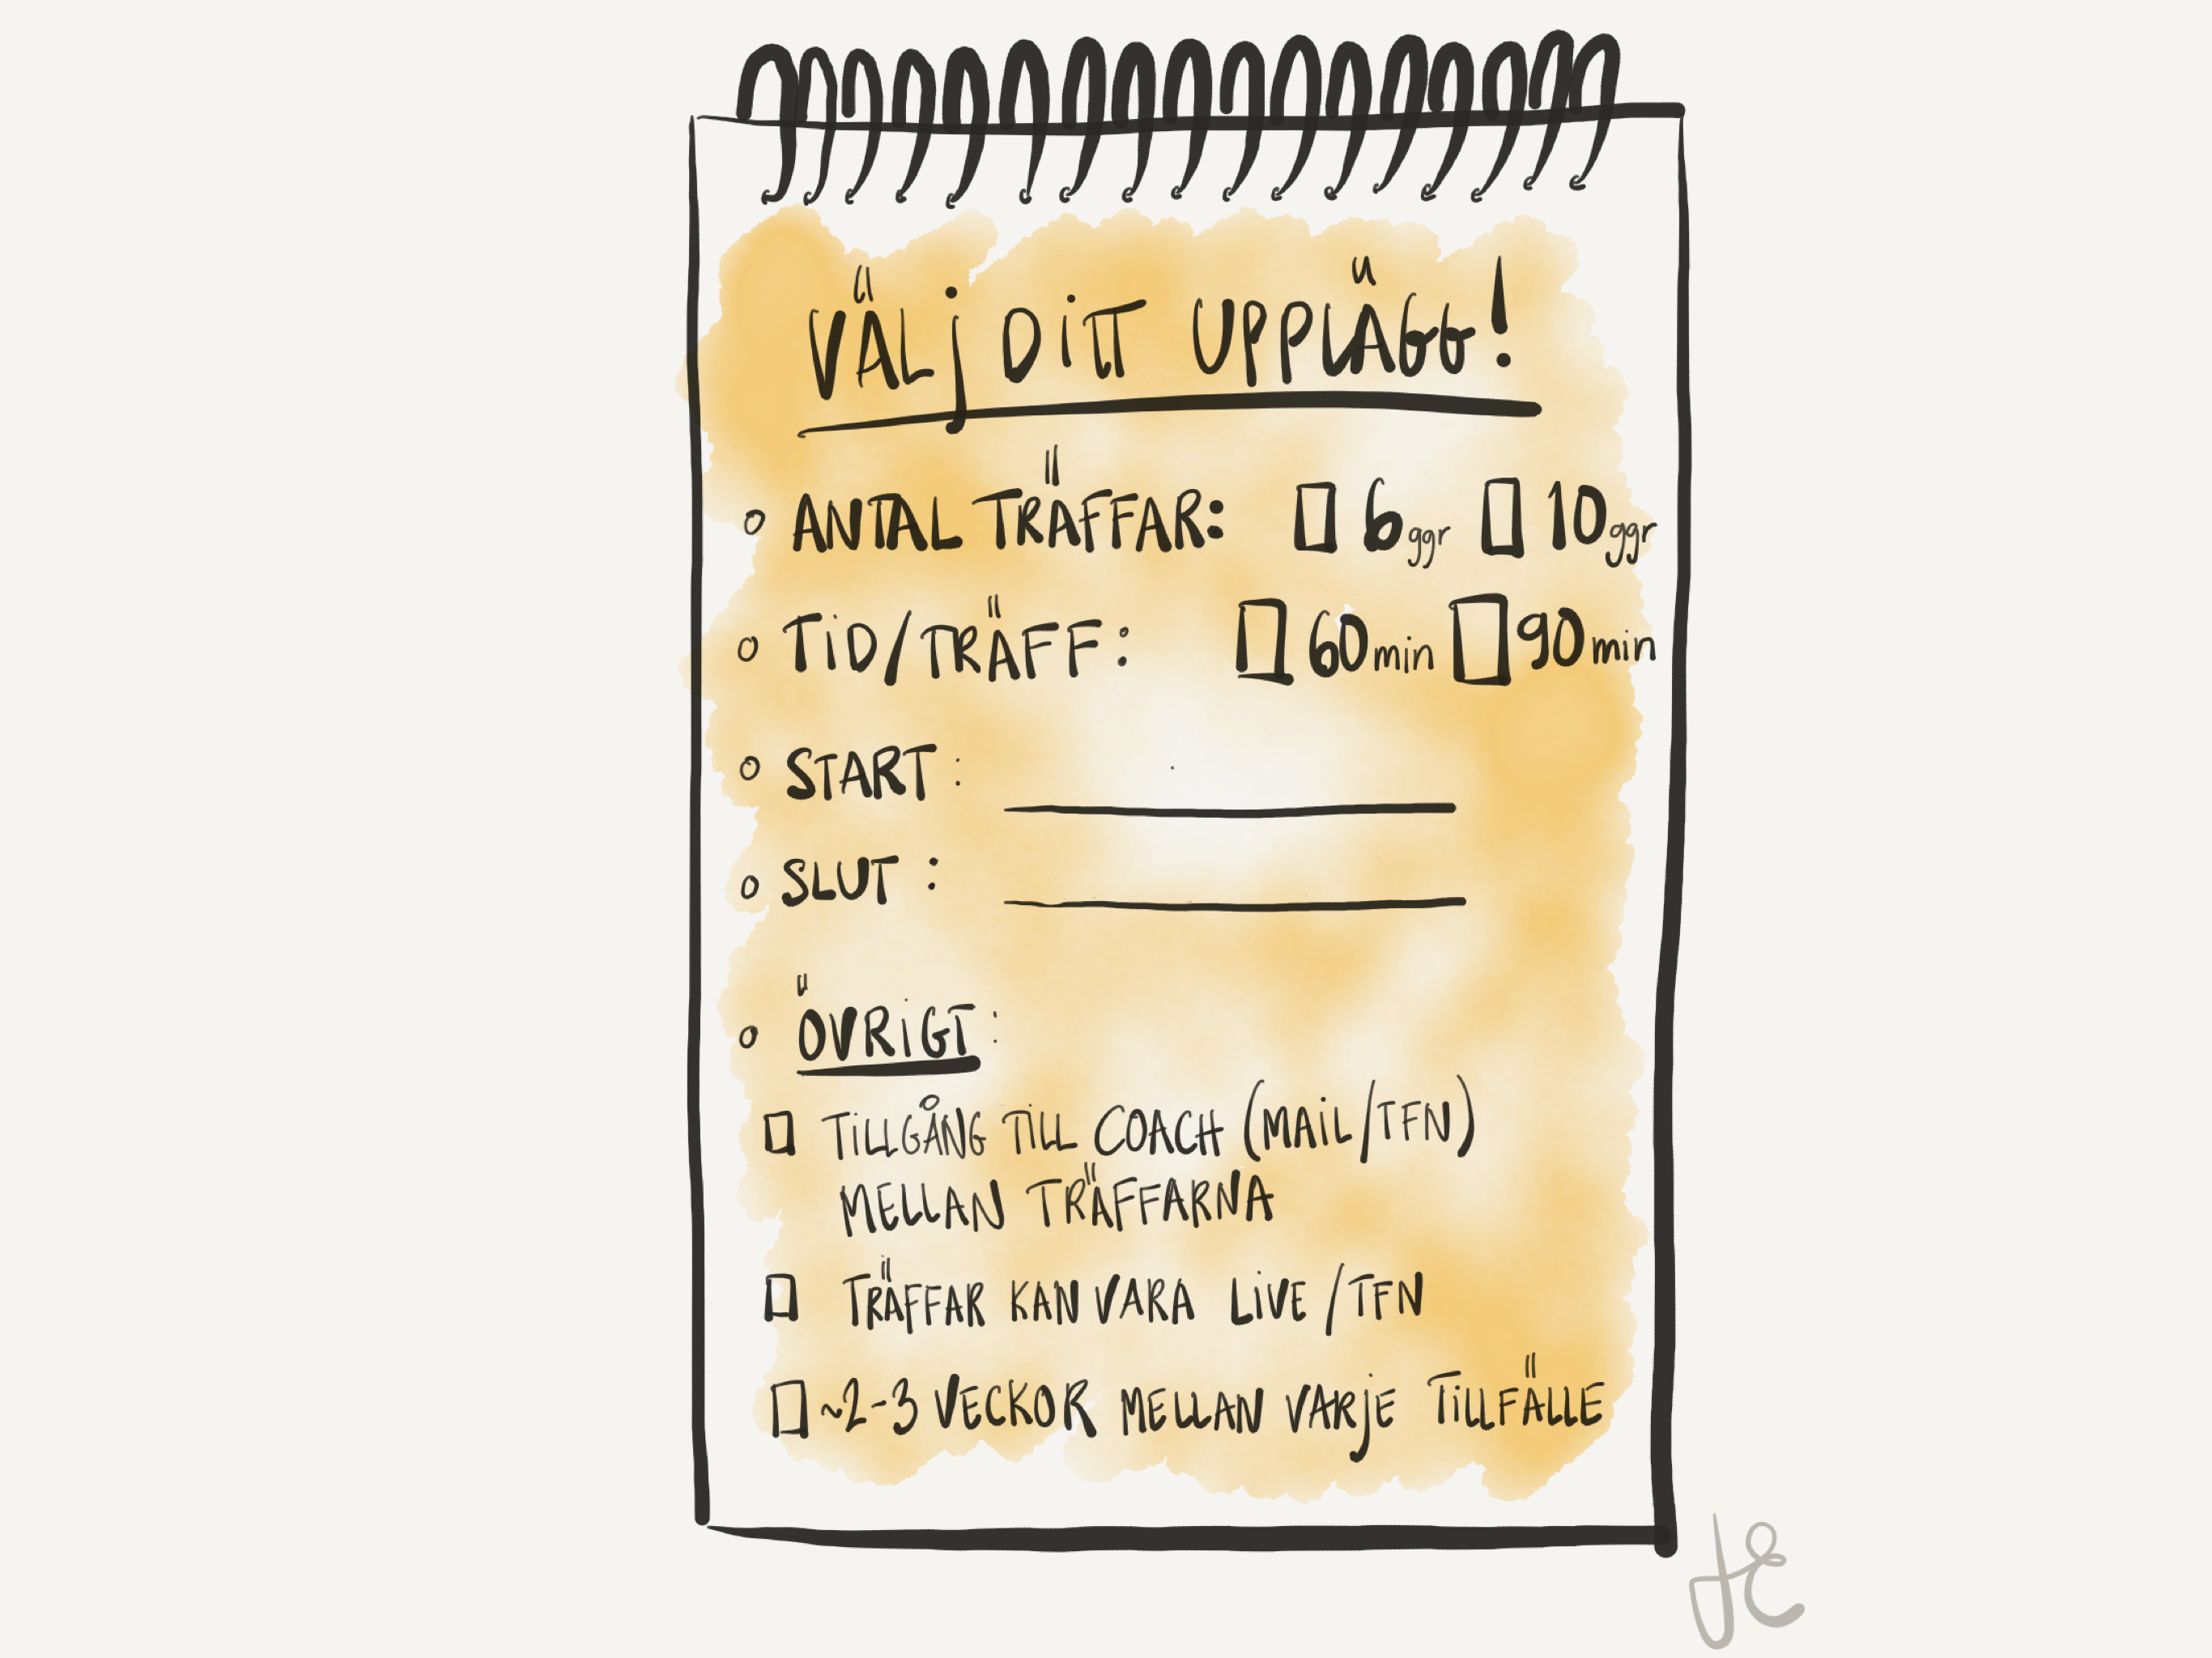 VÄLJ DITT UPPLÄGG!
ANTAL TRÄFFAR: 6 ggr 10 ggr
TID/TRÄFF: 60 min 90 min
START:
SLUT:
ÖVRIGT:
TILLGÅNG TILL COACH (MAIL/TFN)
MELLAN TRÄFFARNA
TRÄFFAR KAN VARA LIVE/TFN
~2-3 VECKOR MELLAN VARJE TILLFÄLLE
JE